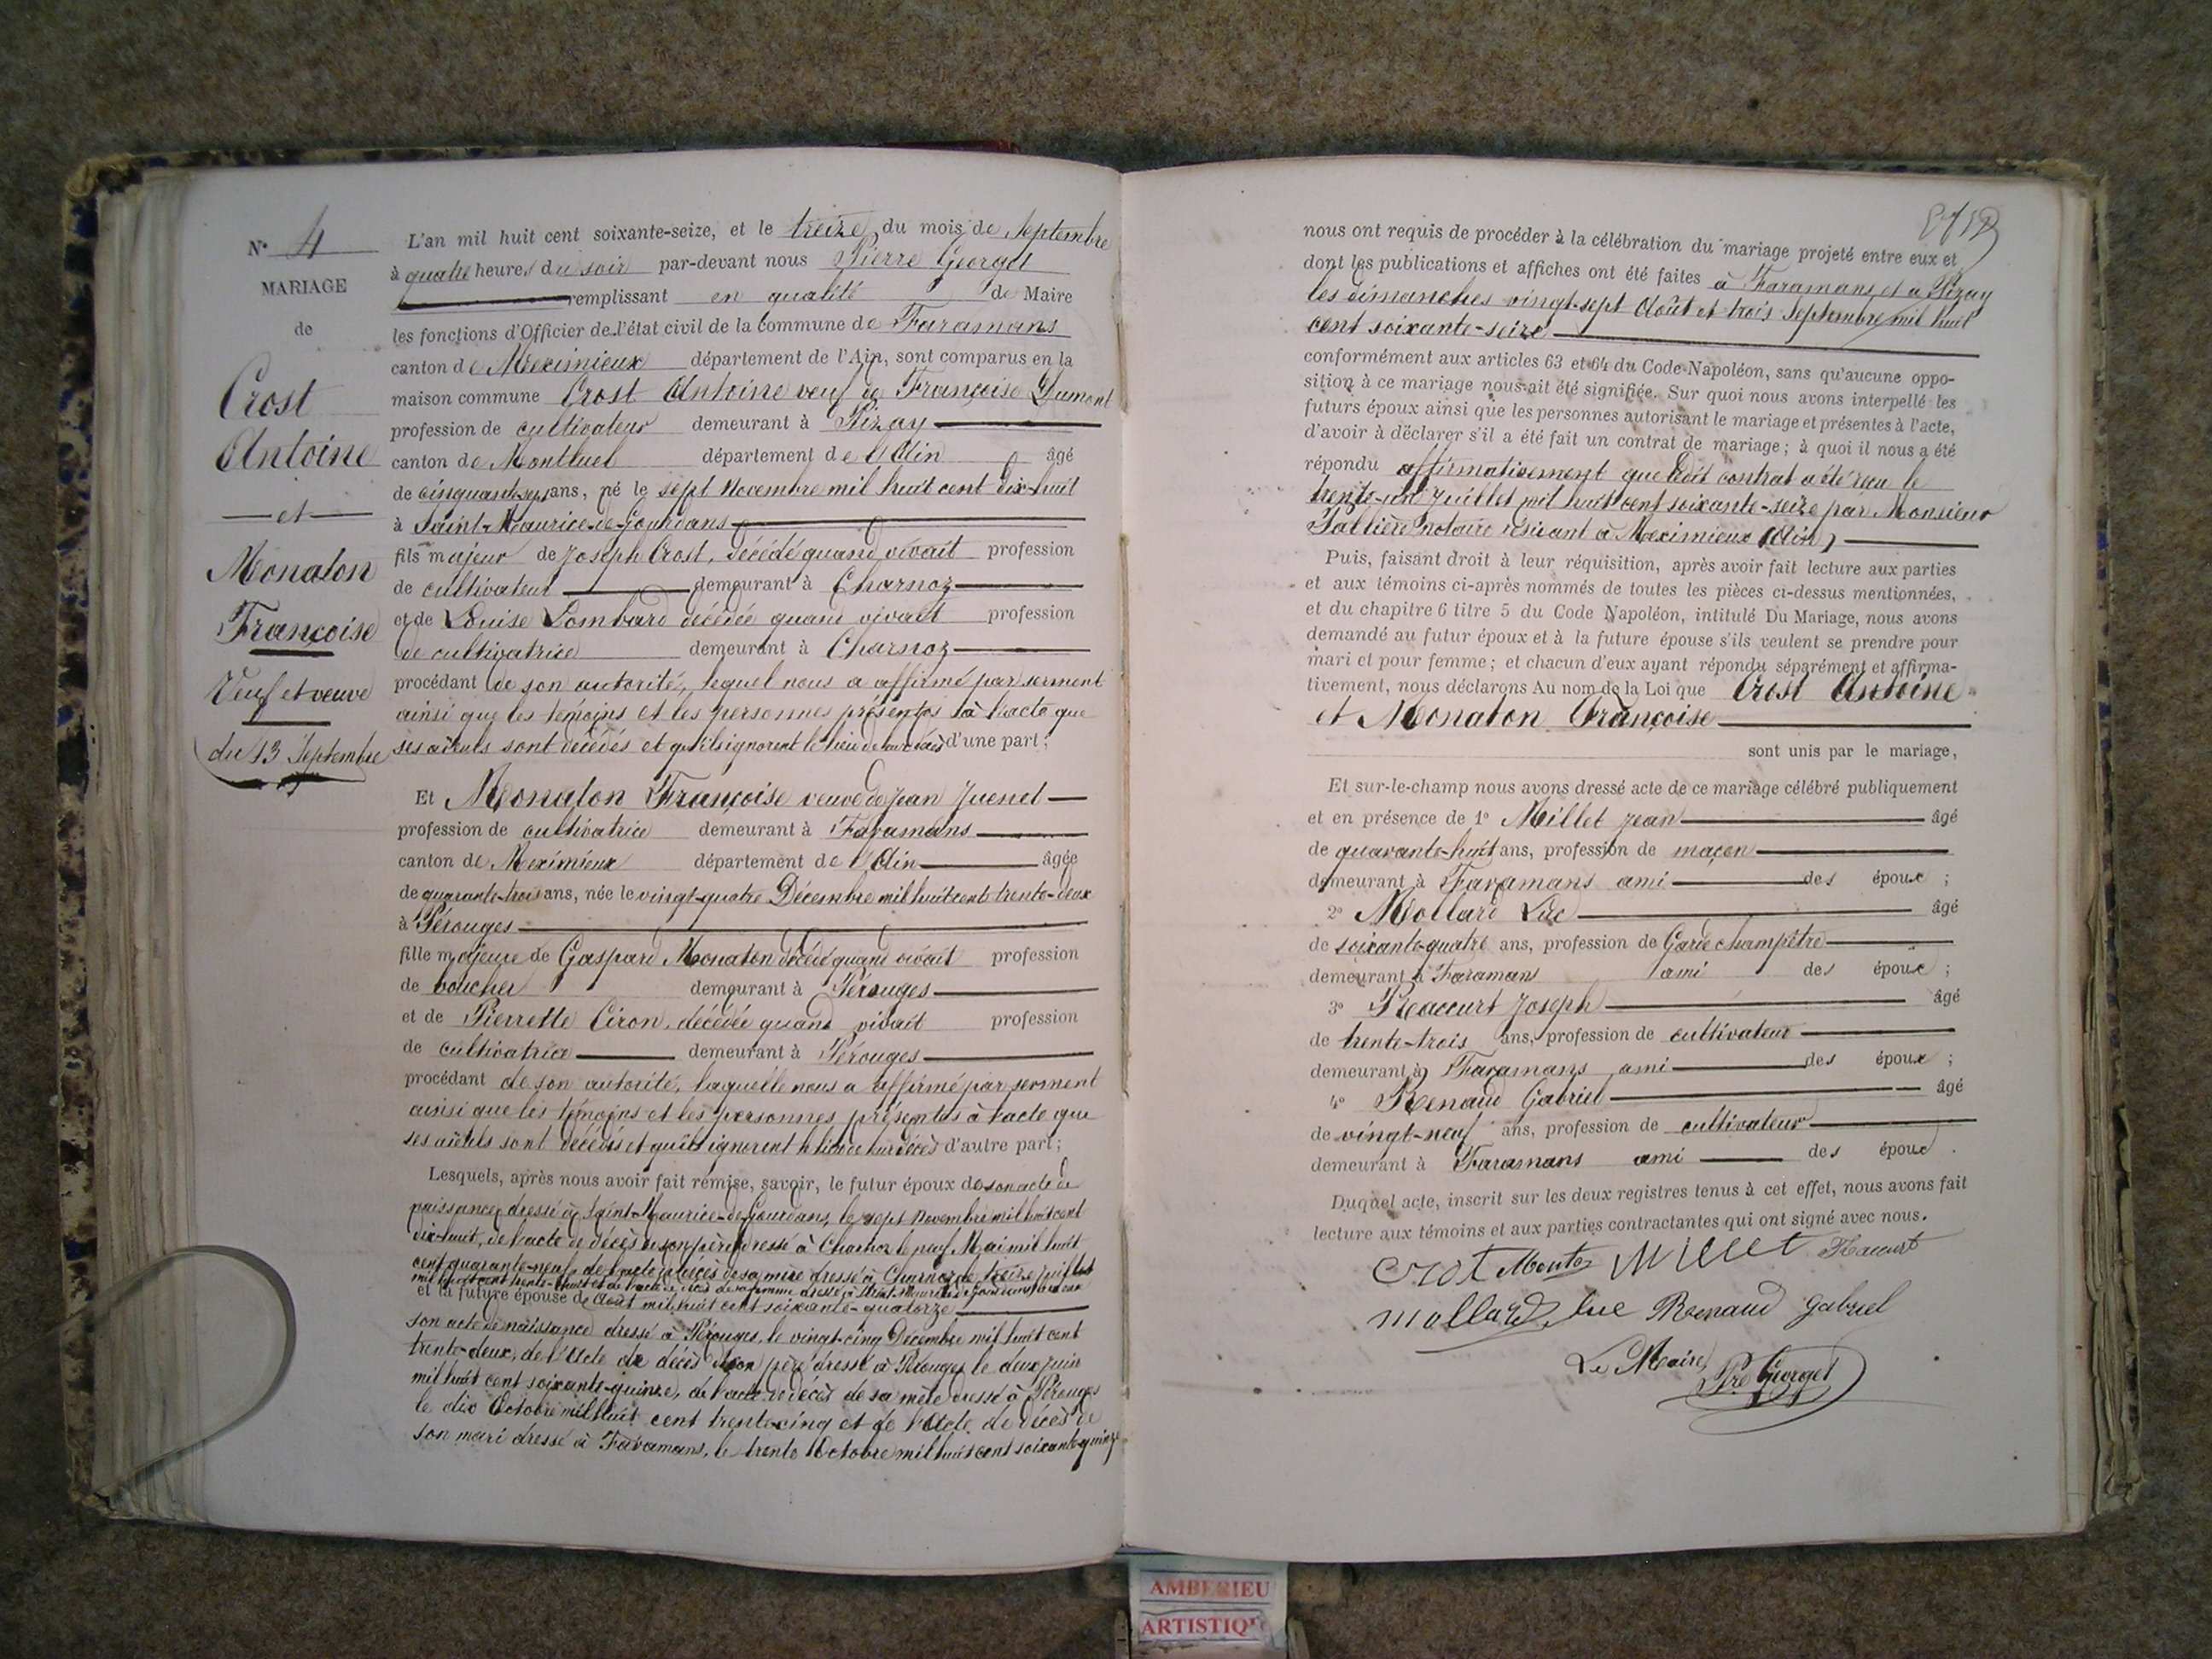 N° 4
MARIAGE
de
Crost
Antoine
et
Monaton
Françoise
Veuf et veuve
du 13 Septembre
L'an mil huit cent soixante-seize, et le treize du mois de Septembre
à quatre heures du soir par-devant nous Pierre Georget
remplissant en qualité de Maire
les fonctions d'Officier de l'état civil de la commune de Faramans
canton de Meximieux département de l'Ain, sont comparus en la
maison commune Crost Antoine veuf de Françoise Dumont
profession de cultivateur demeurant à Pizay
canton de Montluel département de l'Ain âgé
de cinquante-sept ans, né le sept Novembre mil huit cent dix-huit
à Saint-Maurice-de-Gourdans
fils majeur de Joseph Crost, décédé quand vivait profession
de cultivateur demeurant à Charnoz
et de Louise Lombard décédée quand vivait profession
de cultivatrice demeurant à Charnoz
procédant de son autorité, lequel nous a affirmé par serment
ainsi que les témoins et les personnes présentes à l'acte que
ses aïeuls sont décédés et qu'ils ignorent le lieu de leur décès d'une part;
Et Monaton Françoise veuve de Jean Juenet
profession de cultivatrice demeurant à Faramans
canton de Meximieux département de l'Ain âgée
de quarante-trois ans, née le vingt-quatre Décembre mil huit cent trente-deux
à Pérouges
fille majeure de Gaspard Monaton décédé quand vivait profession
de boucher demeurant à Pérouges
et de Pierrette Ciron, décédée quand vivait profession
de cultivatrice demeurant à Pérouges
procédant de son autorité, laquelle nous a affirmé par serment
ainsi que les témoins et les personnes présentes à l'acte que
ses aïeuls sont décédés et qu'ils ignorent le lieu de leur décès d'autre part;
Lesquels, après nous avoir fait remise, savoir, le futur époux de son acte de
naissance, dressé à Saint-Maurice-de-Gourdans, le sept Novembre mil huit cent
dix-huit, de l'acte de décès de son père dressé à Charnoz le neuf Mai mil huit
cent quarante-neuf, de l'acte de décès de sa mère dressé à Charnoz le treize Juillet
mil huit cent trente-huit et de l'acte de décès de sa femme dressé à Saint-Maurice-de-Gourdans
et la future épouse de Août mil huit cent soixante-quatorze
son acte de naissance dressé à Pérouges, le vingt-cinq Décembre mil huit cent
trente-deux, de l'Acte de décès de son père dressé à Pérouges le deux juin
mil huit cent soixante-quinze, de l'acte de décès de sa mère dressé à Pérouges
le dix Octobre mil huit cent trente-cinq et de l'Acte de décès de
son mari dressé à Faramans, le trente Octobre mil huit cent soixante-quinze
nous ont requis de procéder à la célébration du mariage projeté entre eux et
dont les publications et affiches ont été faites à Faramans et à Pizay
les dimanches vingt-sept Août et trois Septembre mil huit
cent soixante-seize
conformément aux articles 63 et 64 du Code Napoléon, sans qu'aucune oppo-
sition à ce mariage nous ait été signifiée. Sur quoi nous avons interpellé les
futurs époux ainsi que les personnes autorisant le mariage et présentes à l'acte,
d'avoir à déclarer s'il a été fait un contrat de mariage; à quoi il nous a été
répondu affirmativement que ledit contrat a été reçu le
trente-un Juillet mil huit cent soixante-seize par Monsieur
notaire résidant à Meximieux (Ain)
Puis, faisant droit à leur réquisition, après avoir fait lecture aux parties
et aux témoins ci-après nommés de toutes les pièces ci-dessus mentionnées,
et du chapitre 6 titre 5 du Code Napoléon, intitulé Du Mariage, nous avons
demandé au futur époux et à la future épouse s'ils veulent se prendre pour
mari et pour femme; et chacun d'eux ayant répondu séparément et affirma-
tivement, nous déclarons Au nom de la Loi que Crost Antoine
et Monaton Françoise
sont unis par le mariage,
Et sur-le-champ nous avons dressé acte de ce mariage célébré publiquement
et en présence de 1° Millet Jean âgé
de quarante-huit ans, profession de maçon
demeurant à Faramans ami des époux;
2° Mollard Luc âgé
de soixante-quatre ans, profession de Garde champêtre
demeurant à Faramans ami des époux;
3° Raccurt Joseph âgé
de trente-trois ans, profession de cultivateur
demeurant à Faramans ami des époux;
4° Renaud Gabriel âgé
de vingt-neuf ans, profession de cultivateur
demeurant à Faramans ami des époux.
Duquel acte, inscrit sur les deux registres tenus à cet effet, nous avons fait
lecture aux témoins et aux parties contractantes qui ont signé avec nous.
Crot Millet Racurt
mollard luc Renaud gabriel
Le Maire
Pre Georget
AMBERIEU
ARTISTIQ